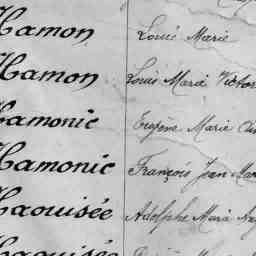 Hamon Louis Marie
Hamon Louis Marie Victor
Hamonic Eugène Marie
Hamonic François Jean Mar
Haouisée Adolphe Marie
Haouisée